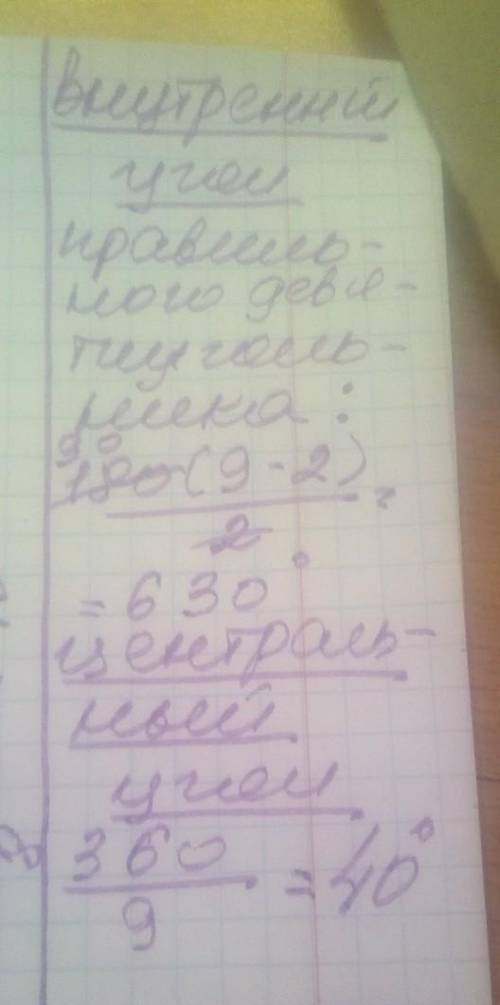 внутренний
угол
правиль-
ного девя-
тиуголь-
ника:
90
180(9-2)
2
=
= 630°
централь-
ный
угол
360
9
= 40°